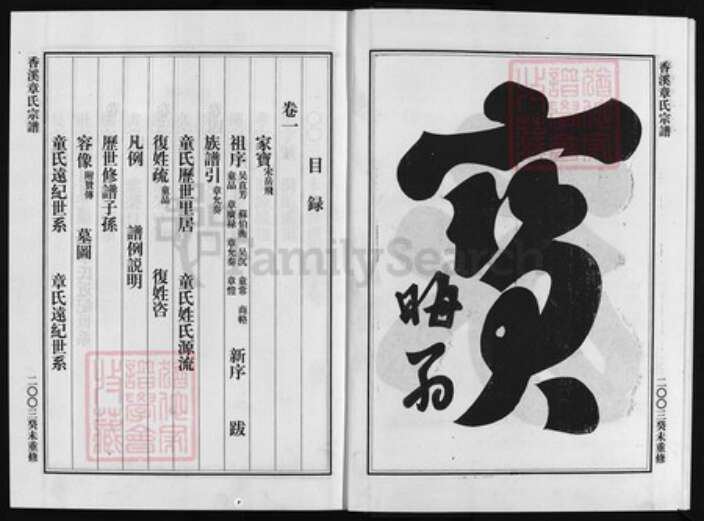 香溪章氏宗譜
寶
晦翁
二〇〇三癸未重修
目録
卷一
家寶 宋岳飛
祖序 吴直芳 蘇伯衡 吴沉 童常 商輅 童品 章廣禄 章允奏 章愷 新序 跋
族譜引 章允奏
童氏歷世里居 童氏姓氏源流
復姓疏 童品 復姓咨
凡例 譜例説明
歷世修譜子孫
容像 附贊傳 墓圖
童氏遠紀世系 章氏遠紀世系
香溪章氏宗譜
二〇〇三癸未重修
FamilySearch